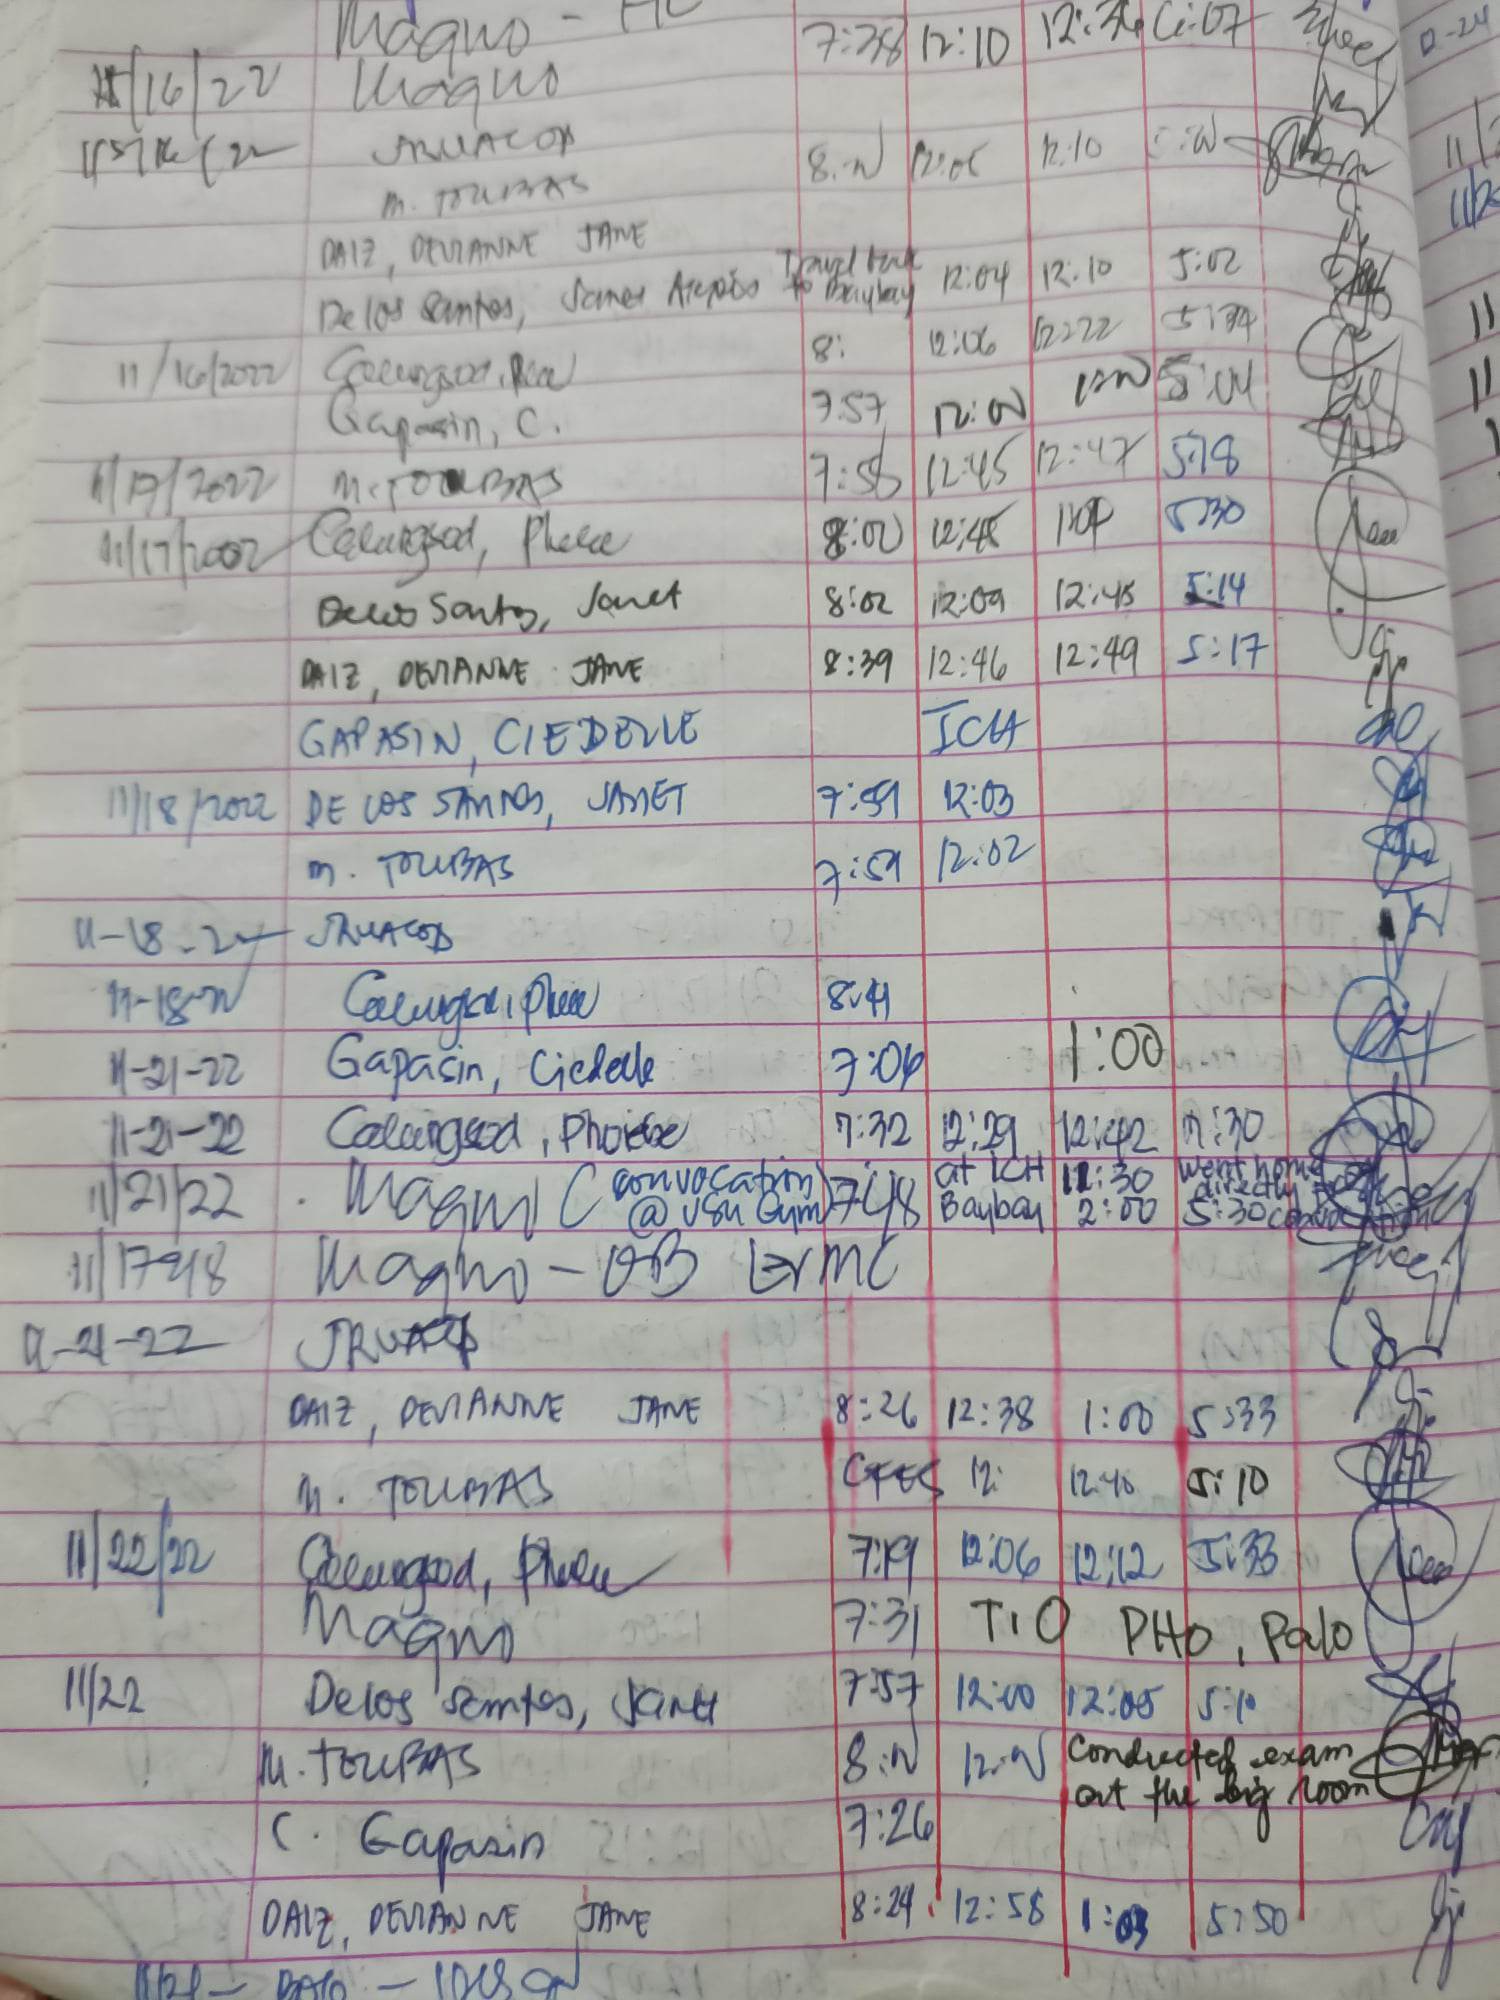 Magno - 
7:38 12:10 12:34
11/16/22 Magno
JRUACOD
M. TOUBAS 8:00 12:05 12:10
DAIZ, DEVIANNE JANE
De los Santos, Travel back to Baybay 12:04 12:10 5:02
11/16/2022 Calungsod, 8: 12:06 12:22 5:34
Gapasin, C. 7:57 12:00 5:04
11/17/2022 M. TOUBAS 7:58 12:45 12:47 5:18
11/17/2002 Calungsod, Phoebe 8:00 12:48 5:30
Delos Santos, Janet 8:02 12:09 12:45 5:14
DAIZ, DEVIANNE JANE 8:39 12:46 12:49 5:17
GAPASIN, CIEDELLE ICH
11/18/2022 DE LOS SANTOS, JANET 7:59 12:03
M. TOUBAS 7:59 12:02
11-18-22 JRUACOD
11-18-22 Calungsod, Phoebe 8:41
11-21-22 Gapasin, Ciedelle 7:06 1:00
11-21-22 Calungsod, Phoebe 7:32 12:29 12:42 7:30
11/21/22 Magno (convocation @ VSU Gym) 7:48 at ICH Baybay 12:30 2:00 went home directly 5:30
11/17&18 Magno - OB EVRMC
11-21-22 JRUACOD
DAIZ, DEVIANNE JANE 8:26 12:38 1:00 5:33
M. TOUBAS CFES 12: 12:40 5:10
11/22/22 Calungsod, Phoebe 7:19 12:06 12:12 5:33
Magno 7:31 T.O PHO, Palo
11/22 Delos Santos, Janet 7:57 12:00 12:05 5:10
M. TOUBAS 8:00 12:00 Conducted exam at the big room
C. Gapasin 7:26
DAIZ, DEVIANNE JANE 8:24 12:58 1:03 5:50